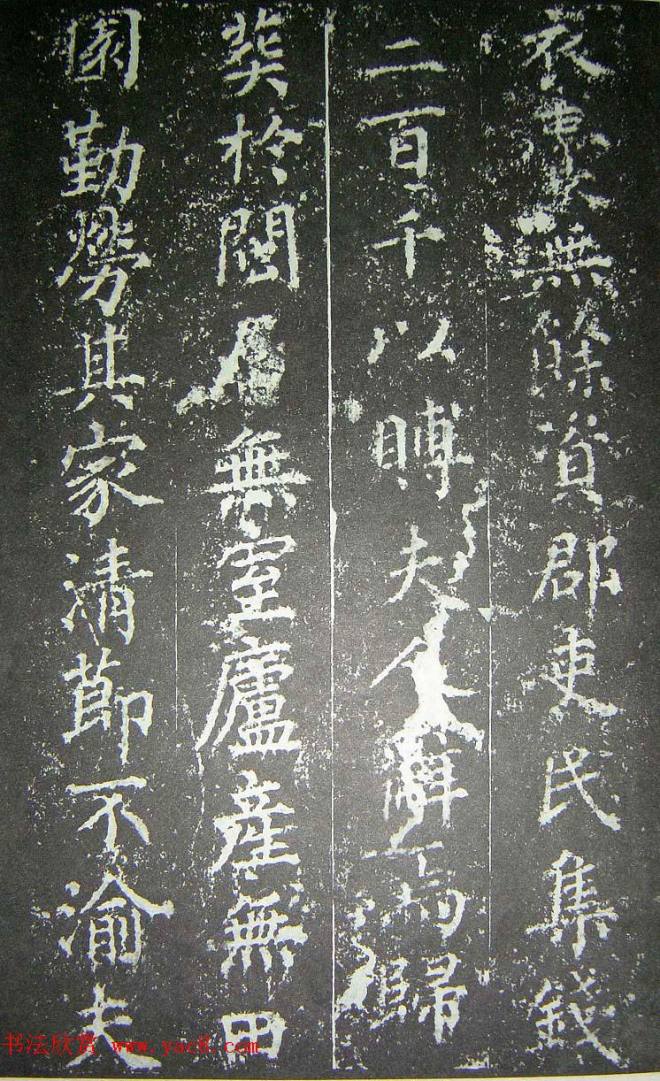 衣衾無餘資郡吏民集錢
二百千以賻夫人辭而歸
葬於閩居無室廬產無田
園勤勞其家清節不渝夫
书法欣赏 www.yac8.com